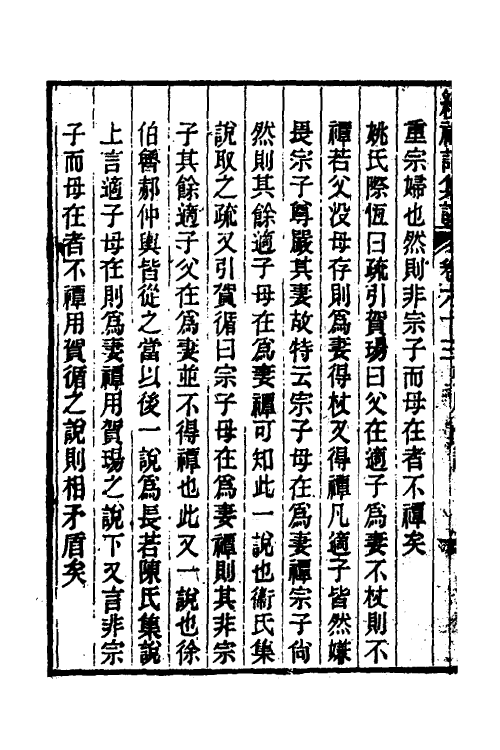 重宗婦也然則非宗子而母在者不禫矣
姚氏際恆曰疏引賀瑒曰父在適子爲妻不杖則不
禫若父沒母存則爲妻得杖又得禫凡適子皆然嫌
畏宗子尊嚴其妻故特云宗子母在爲妻禫宗子尙
然則其餘適子母在爲妻禫可知此一說也衞氏集
說取之疏又引賀循曰宗子母在爲妻禫則其非宗
子其餘適子父在爲妻並不得禫也此又一說也徐
伯魯郝仲輿皆從之當以後一說爲長若陳氏集說
上言適子母在則爲妻禫用賀瑒之說下又言非宗
子而母在者不禫用賀循之說則相矛盾矣
禮記集說 卷六十三